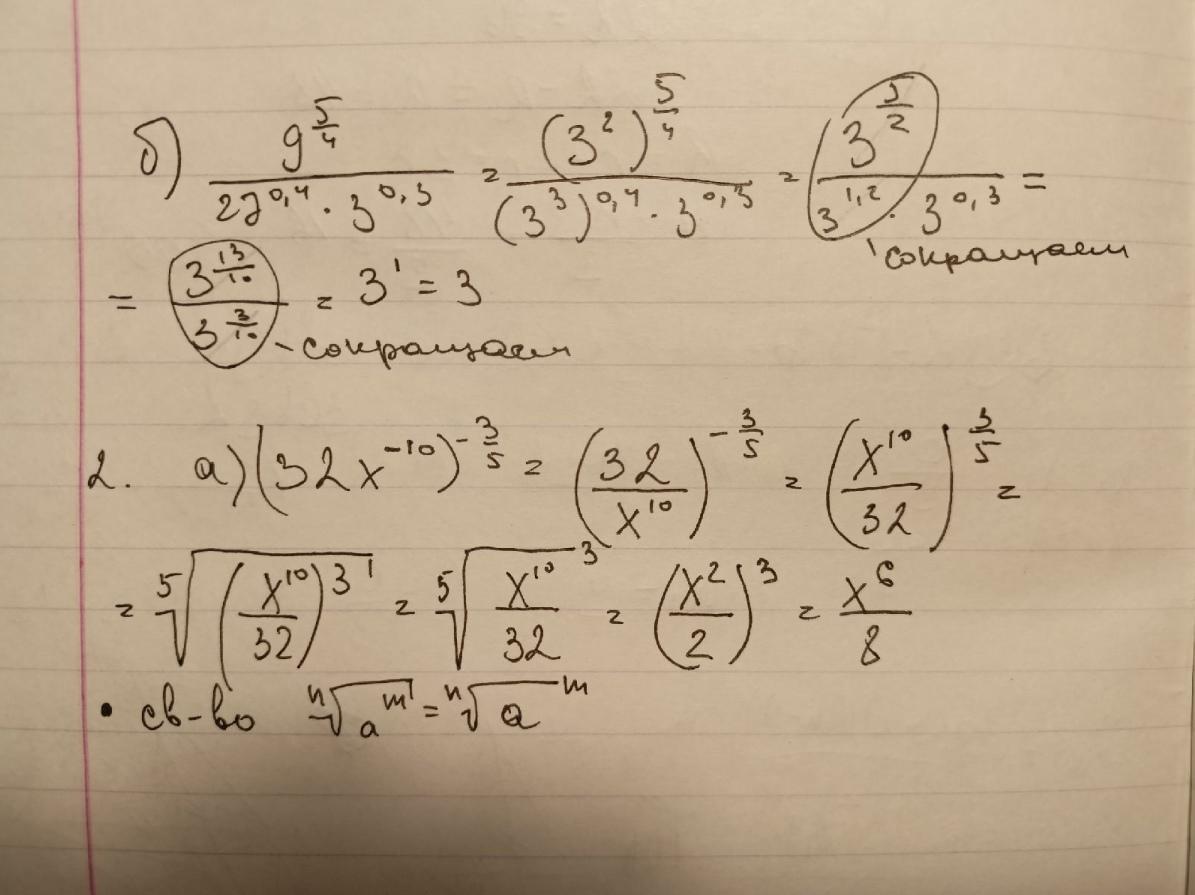 б) 9^(5/4) / (27^(0,4) · 3^(0,3)) = (3^2)^(5/4) / ((3^3)^(0,4) · 3^(0,3)) = 3^(5/2) / (3^(1,2) · 3^(0,3)) =
сокращаем
= 3^(13/10) / 3^(3/10) = 3^1 = 3
- сокращаем
2. а) (32x^(-10))^(-3/5) = (32/x^10)^(-3/5) = (x^10/32)^(3/5) =
= ⁵√((x^10/32)^3) = ⁵√(x^10/32)^3 = (x^2/2)^3 = x^6/8
• св-во ⁿ√(a^m) = ⁿ√a^m